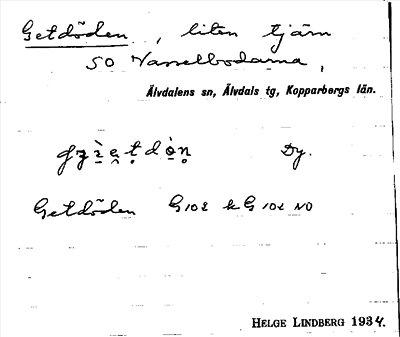 Getdöden, liten tjärn
SO Vasselbodarna,
Älvdalens sn, Älvdals tg, Kopparbergs län.
Dy.
Getdöden G 102 k G 102 NO
HELGE LINDBERG 1934.